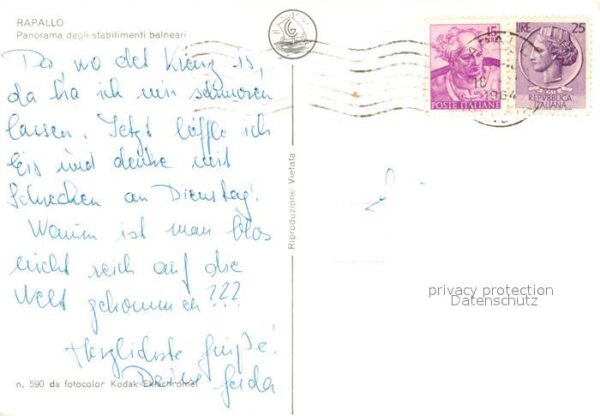 RAPALLO
Panorama degli stabilimenti balneari
Da, wo das Kreuz is,
da ha ich mir schmoren
lassen. Jetzt löffle ich
Eis und denke mit
Schrecken an Dienstag!
Warum ist man blos
nicht reich auf die
Welt gekommen???
Herzlichste Grüße!
Deine Gerda
n. 590 da fotocolor Kodak-Ektachrome
Riproduzione Vietata
15
POSTE ITALIANE
LIRE 25
REPVBBLICA
ITALIANA
1964
privacy protection
Datenschutz